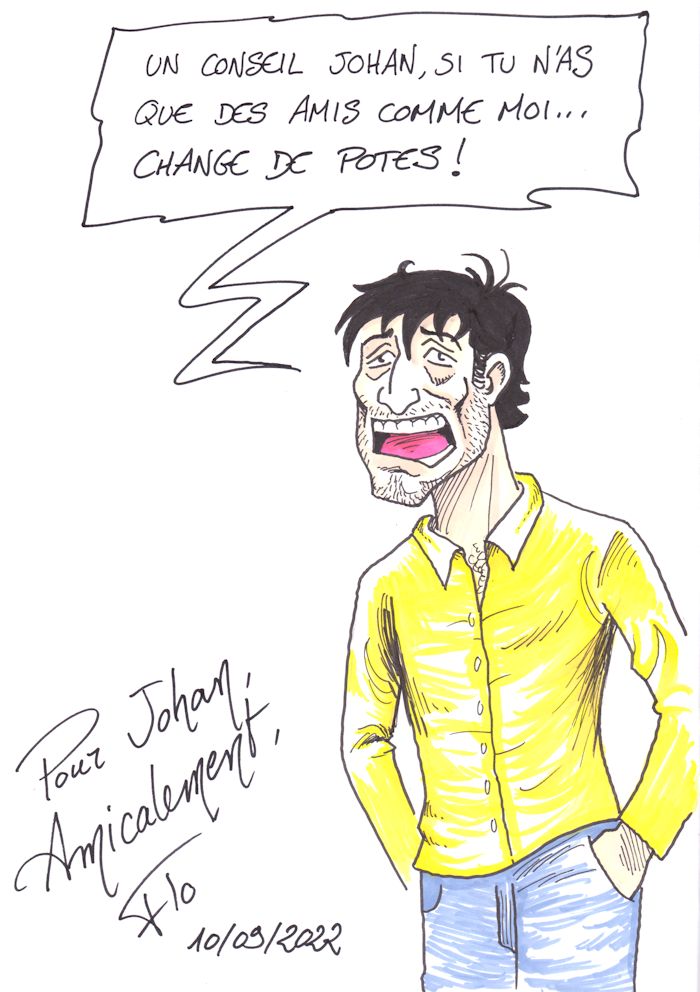 UN CONSEIL JOHAN, SI TU N'AS
QUE DES AMIS COMME MOI...
CHANGE DE POTES !
Pour Johan,
Amicalement,
Flo
10/09/2022